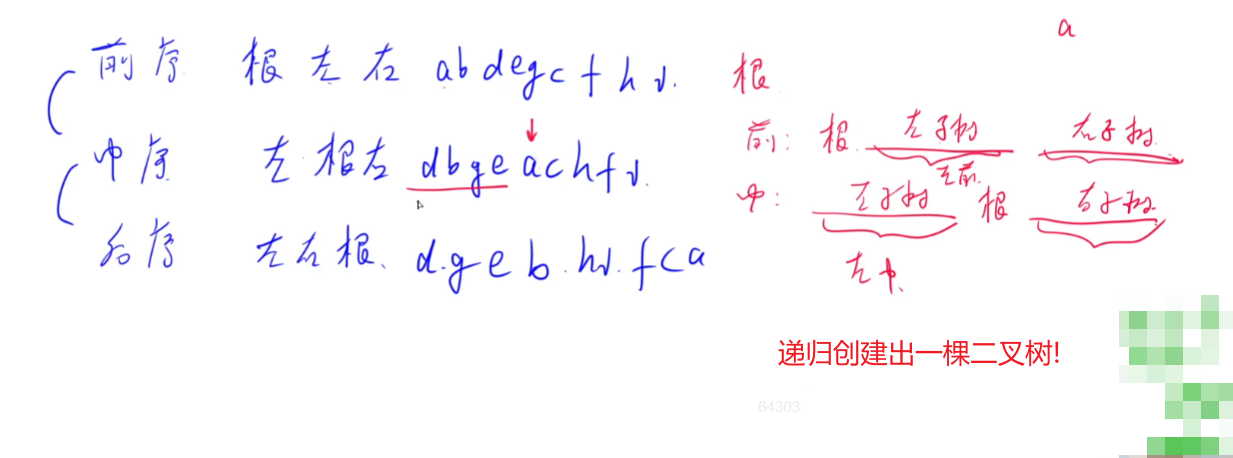 a
前序 根左右 abdegcfhi.
中序 左根右 dbgeachfi.
后序 左右根、 d.geb.hi.fca
根
前: 根 左子树 右子树
左前
中: 左子树 根 右子树
左中
递归创建出一棵二叉树!
64303